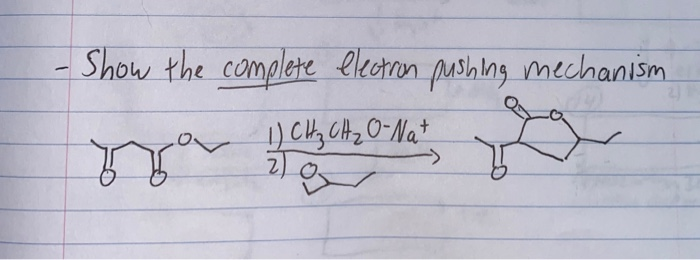 - Show the complete electron pushing mechanism
1) CH3CH2O-Na+
2)
O
O
O
O
O
O
O